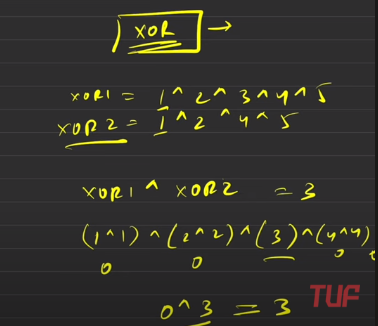 XOR →
XOR1 = 1 ^ 2 ^ 3 ^ 4 ^ 5
XOR2 = 1 ^ 2 ^ 4 ^ 5
XOR1 ^ XOR2 = 3
(1^1) ^ (2^2) ^ (3) ^ (4^4)
0 0 0
0^3 = 3
TUF